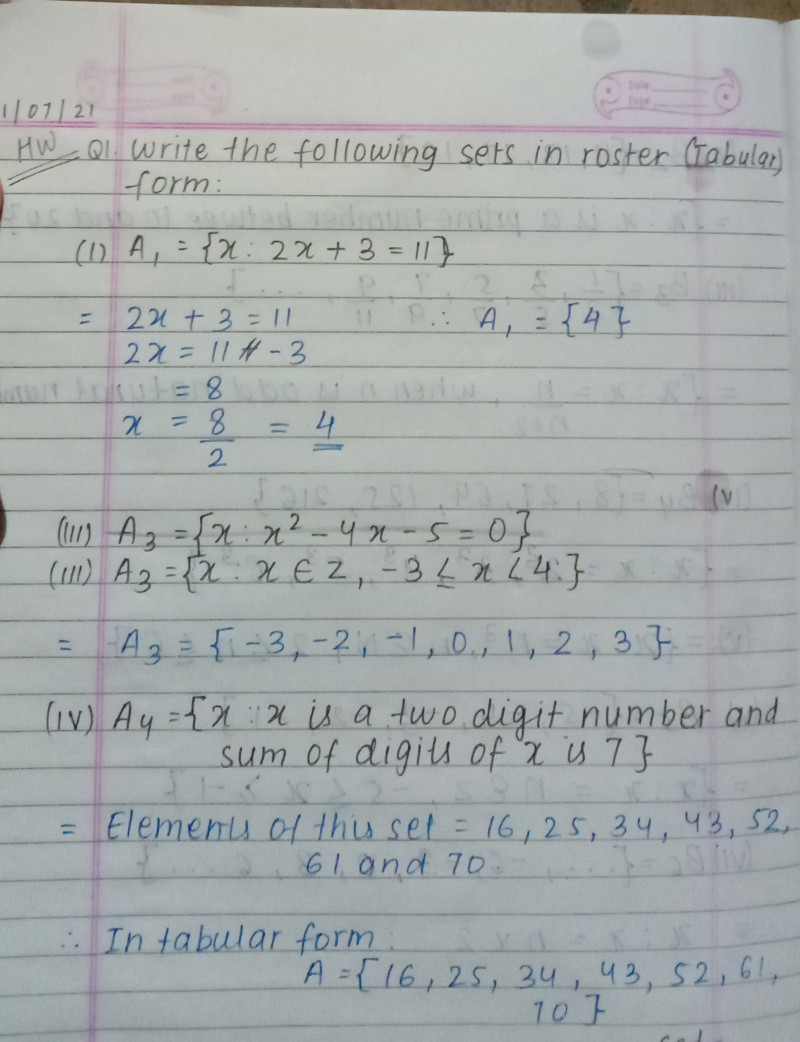 1/07/21
HW Q1. Write the following sets in roster (Tabular)
form:
(I) A₁ = {x : 2x + 3 = 11}
= 2x + 3 = 11 ∴ A₁ = {4}
2x = 11 - 3
= 8
x = 8/2 = 4
(v
(III) A₃ = {x : x² - 4x - 5 = 0}
(III) A₃ = {x : x ∈ Z, -3 ≤ x < 4.}
= A₃ = {-3, -2, -1, 0, 1, 2, 3}
(IV) A4 = {x : x is a two digit number and
sum of digits of x is 7}
= Elements of this set = 16, 25, 34, 43, 52,
61 and 70.
∴ In tabular form.
A = {16, 25, 34, 43, 52, 61,
70}